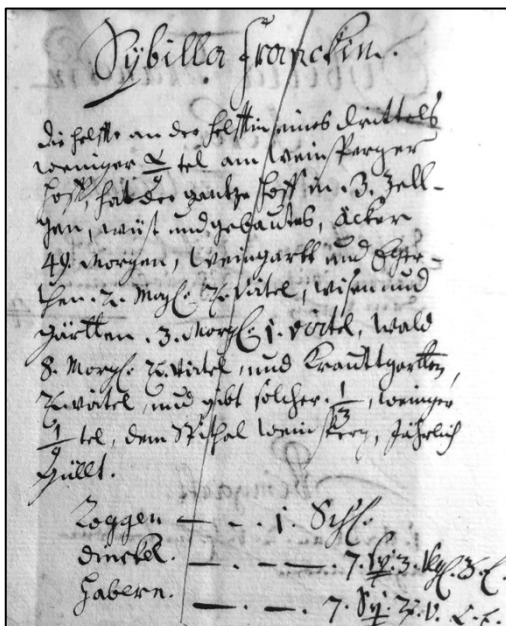 Sybilla Franckin.
die helffte an der helfft in eines drittels
weniger tel am Weinsperger
hoff, hat der gantze hoff in .3. Zell-
gen, wüst und gebautes, Äcker
49. Morgen, Weingartt und
2. Morg: 2. Virtel, wisen und
gärtten .3. Morg: 1. virtel, wald
8. Morg: 2. Virtel, und Krauttgartten,
2. virtel, und gibt solcher weniger
tel, dem Spithal Weinsperg, Jährlich
Güllt.
Roggen — - . 1. Sch:
dinckel. —. —. 7. Sj. 3.
habern. —. —. 7. Sj.